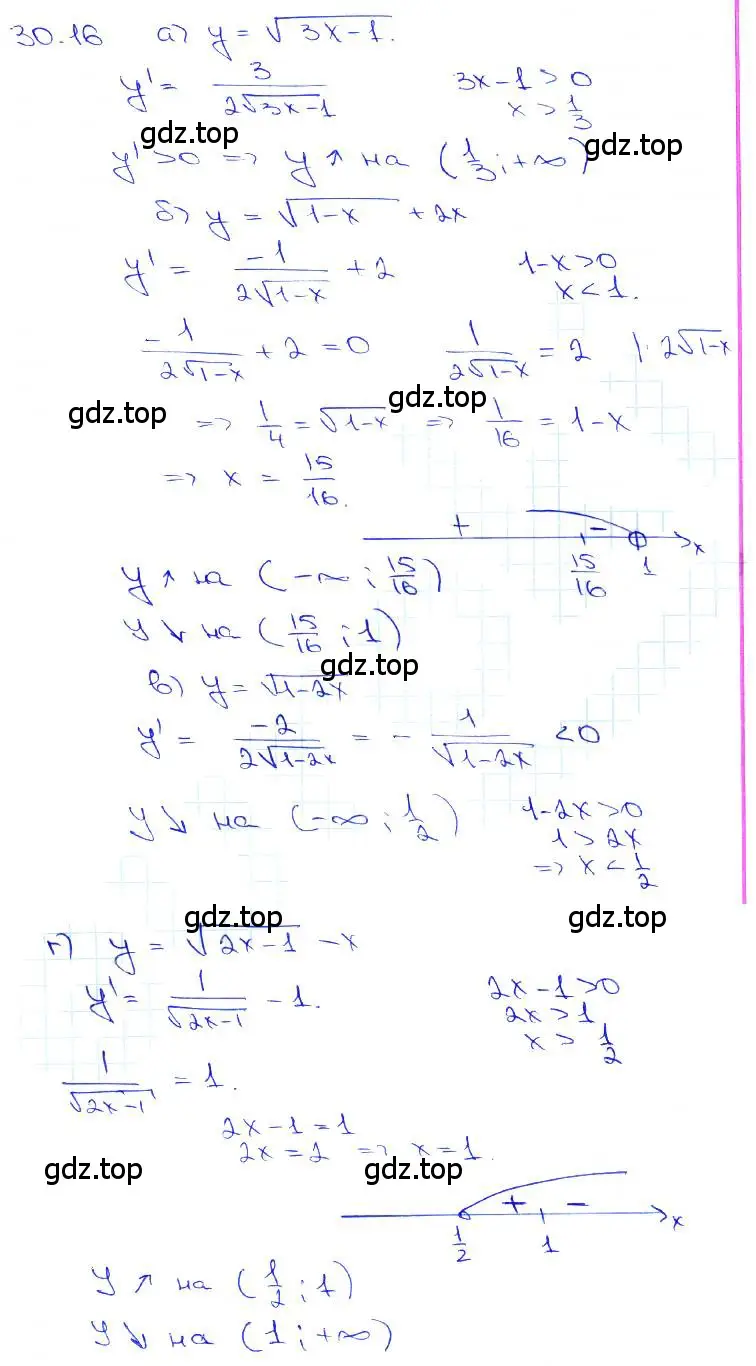 30.16 а) y = √(3x-1).
y' = 3/(2√(3x-1)) 3x-1 > 0
x > 1/3
gdz.top gdz.top
y' > 0 => y ↑ на (1/3; +∞)
б) y = √(1-x) + 2x
y' = -1/(2√(1-x)) + 2 1-x > 0
x < 1.
-1/(2√(1-x)) + 2 = 0 1/(2√(1-x)) = 2 |· 2√(1-x)
gdz.top gdz.top
=> 1/4 = √(1-x) => 1/16 = 1-x
=> x = 15/16.
+ - x
15/16 1
y ↑ на (-∞; 15/16)
y ↓ на (15/16; 1)
gdz.top
в) y = √(1-2x)
y' = -2/(2√(1-2x)) = - 1/√(1-2x) < 0
y ↓ на (-∞; 1/2) 1-2x > 0
1 > 2x
=> x < 1/2
gdz.top gdz.top
г) y = √(2x-1) - x
y' = 1/√(2x-1) - 1. 2x-1 > 0
2x > 1
x > 1/2
1/√(2x-1) = 1.
2x-1 = 1
2x = 2 => x = 1.
gdz.top gdz.top
+ - x
1/2 1
y ↑ на (1/2; 1)
y ↓ на (1; +∞)